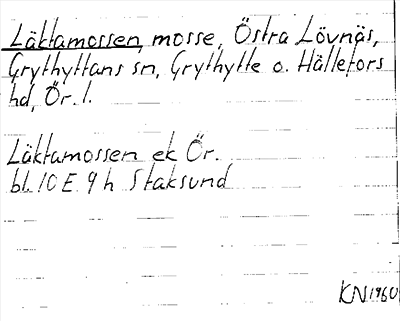 Läktamossen, mosse, Östra Lövnäs,
Grythyttans sn, Grythytte o. Hällefors
hd, Ör. l.
Läktamossen ek Ör.
bl. 10 E 9 h Staksund
KN 1960